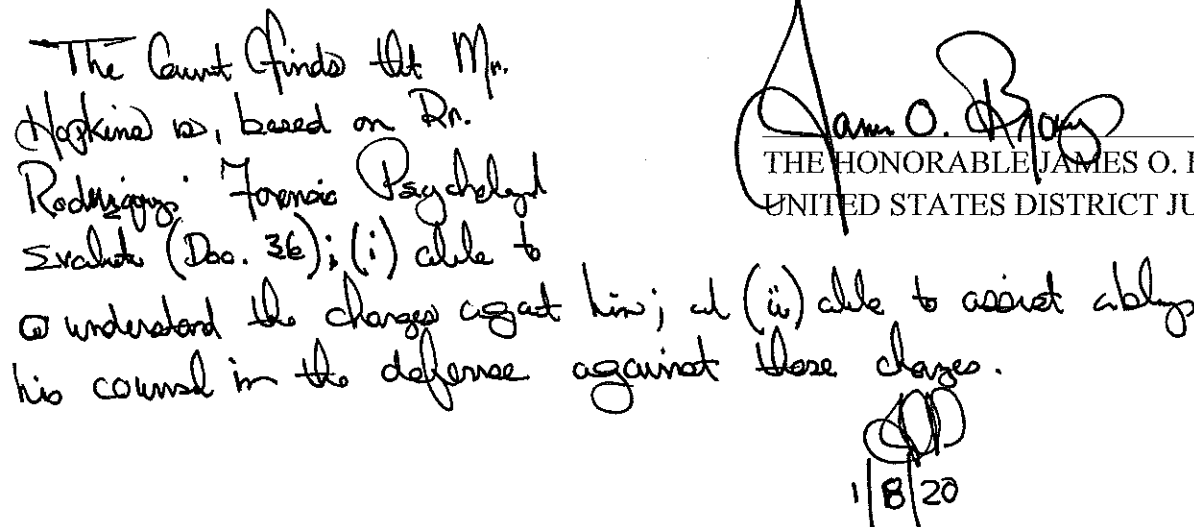 The Court finds that Mr.
Hopkins is, based on Dr.
Rodriguez' Forensic Psychological
Evaluation (Doc. 36); (i) able to
understand the charges against him; and (ii) able to assist ably
his counsel in the defense against those charges.
James O. Browning
THE HONORABLE JAMES O.
UNITED STATES DISTRICT JU
1/8/20